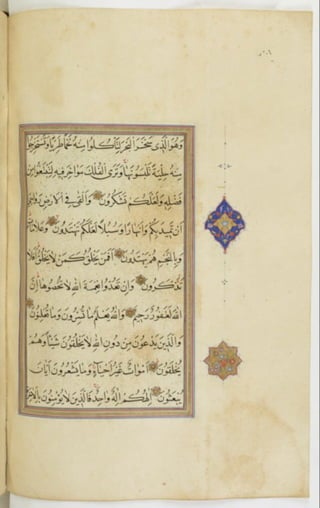 وَهُوَ الَّذِي سَخَّرَ الْبَحْرَ لِتَأْكُلُوا مِنْهُ لَحْمًا طَرِيًّا وَتَسْتَخْرِجُوا
مِنْهُ حِلْيَةً تَلْبَسُونَهَا وَتَرَى الْفُلْكَ مَوَاخِرَ فِيهِ وَلِتَبْتَغُوا مِنْ
فَضْلِهِ وَلَعَلَّكُمْ تَشْكُرُونَ وَأَلْقَى فِي الْأَرْضِ رَوَاسِيَ
أَنْ تَمِيدَ بِكُمْ وَأَنْهَارًا وَسُبُلًا لَعَلَّكُمْ تَهْتَدُونَ وَعَلَامَاتٍ
وَبِالنَّجْمِ هُمْ يَهْتَدُونَ أَفَمَنْ يَخْلُقُ كَمَنْ لَا يَخْلُقُ أَفَلَا
تَذَكَّرُونَ وَإِنْ تَعُدُّوا نِعْمَةَ اللَّهِ لَا تُحْصُوهَا إِنَّ
اللَّهَ لَغَفُورٌ رَحِيمٌ وَاللَّهُ يَعْلَمُ مَا تُسِرُّونَ وَمَا تُعْلِنُونَ
وَالَّذِينَ يَدْعُونَ مِنْ دُونِ اللَّهِ لَا يَخْلُقُونَ شَيْئًا وَهُمْ
يُخْلَقُونَ أَمْوَاتٌ غَيْرُ أَحْيَاءٍ وَمَا يَشْعُرُونَ أَيَّانَ
يُبْعَثُونَ إِلَهُكُمْ إِلَهٌ وَاحِدٌ فَالَّذِينَ لَا يُؤْمِنُونَ بِالْآخِرَةِ